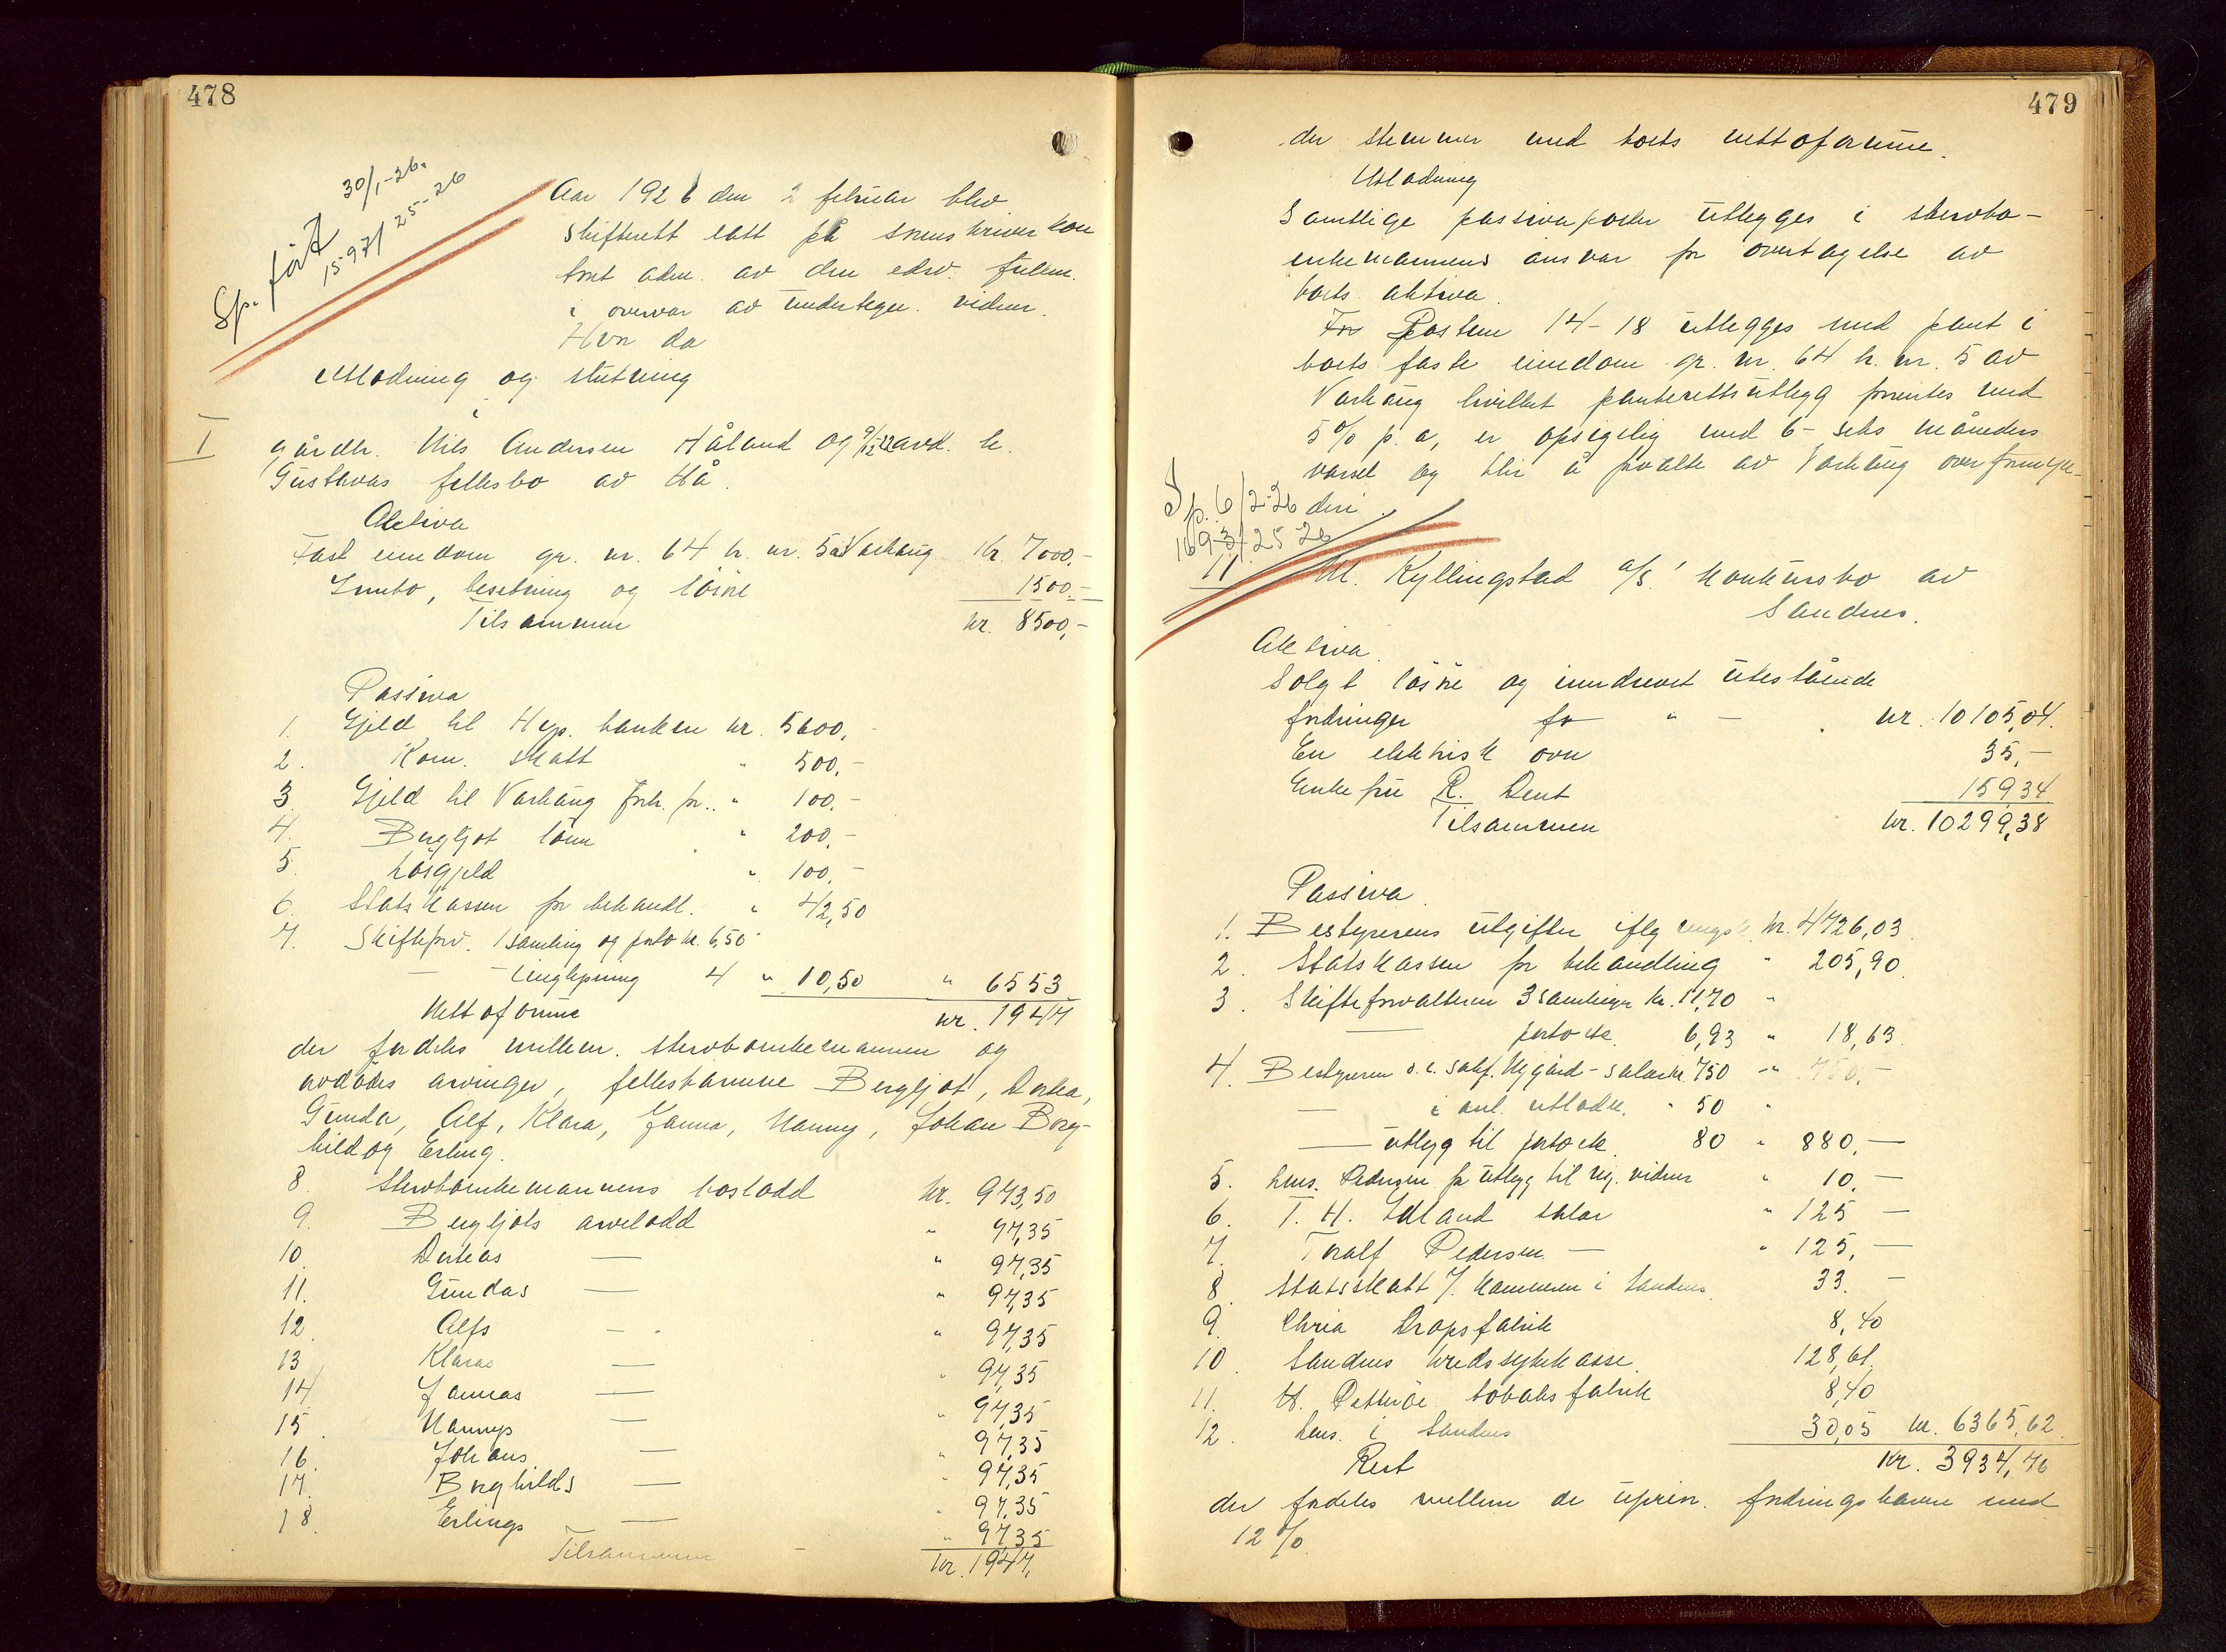 478
Sp. ført 30/1-26.
1597/25-26
Aar 1926 den 2 februar blev
skifterett satt på sorenskriverkon
toret adm. av den edsv. fullm.
i overvær av undertegn. vidner.
Hvor da
Utlodning og slutning
i
I gårdbr. Nils Andersen Håland og 9/12-22 avd. h.
Gustavas fellesbo av Hå.
Aktiva
Fast eiendom gr. nr. 64 b. nr. 5 av Varhaug Kr. 7000,-
Innbo, besetning og løsøre 1500.-
Tilsammen kr. 8500,-
Passiva
1. Gjeld til Hyp. banken kr. 5600,-
2. Kom. skatt " 500,-
3. Gjeld til Varhaug forb. for. " 100.-
4. Bergljot lønn " 200,-
5. Løsgjeld " 100,-
6. Statskassen for behandl. " 42,50
7. Skifteforv. 1 samling og porto kr. 6,50
— - tinglysning 4 " 10,50 " 6553
Nettoformue kr. 1947
der fordeles mellem stervboenkemannen og
avdødes arvinger, fellesbarnene Bergljot, Dorthea,
Gunda, Alf, Klara, Janna, Nanny, Johan Borg-
hild og Erling.
8. Stervboenkemannens boslodd kr. 973,50
9. Bergljots arvelodd " 97,35
10. Dortheas — " 97,35
11. Gundas — " 97,35
12. Alfs — " 97,35
13 Klaras — " 97,35
14 Jannas — " 97,35
15. Nannys — " 97,35
16. Johans — " 97,35
17. Borghilds — " 97,35
18. Erlings — " 97,35
Tilsammen - kr. 1947,
479
der stemmer med boets nettoformue.
Utlodning
Samtlige passivaposter utlegges i stervbo-
enkemannens ansvar for overtagelse av
boets aktiva.
For Postene 14-18 utlegges med pant i
boets faste eiendom gr. nr. 64 b. nr. 5 av
Varhaug hvilket panterettsutlegg forrentes med
5% p. a, er opsigelig med 6- seks måneders
varsel og blir å forvalte av Varhaug overformyn-
deri.
Sp. 6/2-26
1693/25-26
II M. Kyllingstad a/s' konkursbo av
Sandnes.
Aktiva.
Solgt løsøre og inndrevet utestående
fordringer for " - kr. 10105,04.
En elektrisk ovn 35,-
Enkefru R. Dent 159,34
Tilsammen kr. 10299,38
Passiva.
1. Bestyrerens utgifter iflg regnsk. kr. 4726,03
2. Statskassen for behandling " 205,90
3. Skifteforvalteren 3 samlinger kr. 11,70 "
— porto etc. 6,93 " 18,63
4. Bestyreren o.r.sakf. Nygård - salær kr. 750 " 750,-
— i anl. utlodn. " 50 "
— utlegg til porto etc. 80 " 880,—
5. Lens. Pedersen for utlegg til reg. vidner " 10,-
6. T. H. Idland salær " 125 —
7. Toralf Pedersen — " 125,—
8. Statsskatt f. kommunen i Sandnes. 33. -
9. Chria Dropsfabrik 8,40
10. Sandnes kredssykekasse. 128,61.
11. H. Petterøe tobaksfabrik 8,40
12. Lens. i Sandnes 30,05 kr. 6365,62.
Rest Kr. 3934,76
der fordeles mellem de uprior. fordringshavere med
12 %